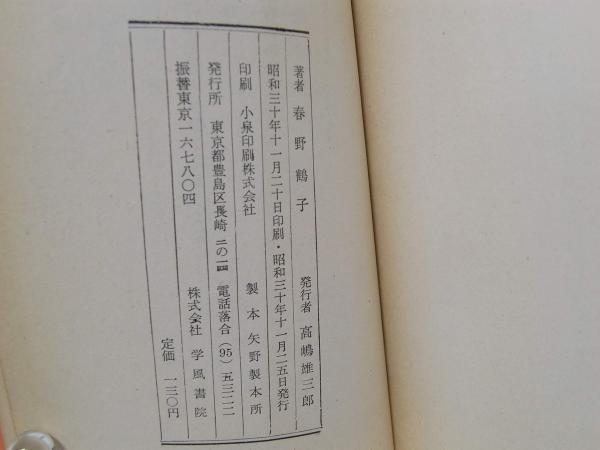 著者 春野鶴子 発行者 高嶋雄三郎
昭和三十年十一月二十日印刷・昭和三十年十一月二五日発行
印刷 小泉印刷株式会社 製本 矢野製本所
発行所 東京都豊島区長崎二の一四 電話落合(95)五三二二
振替東京一六七八〇四 株式会社 学風書院
定価 一三〇円